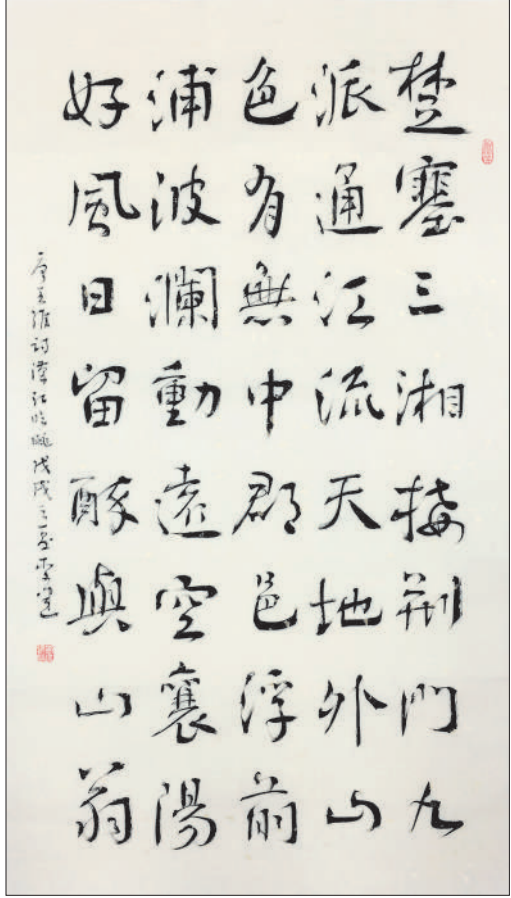 楚塞三湘接荆門九
派通江流天地外山
色有無中郡邑浮前
浦波瀾動遠空襄陽
好風日留醉與山翁
唐王維詩漢江臨眺戊戌